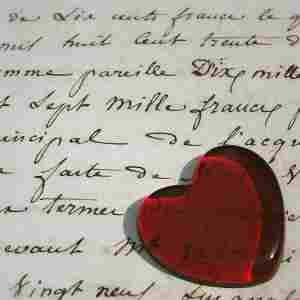 de Six cents francs le
mil huit Cent trente
somme pareille Dix mille
Sept Mille francs
principal de l'acqu
faite de
termer
devant Me
Vingt neuf